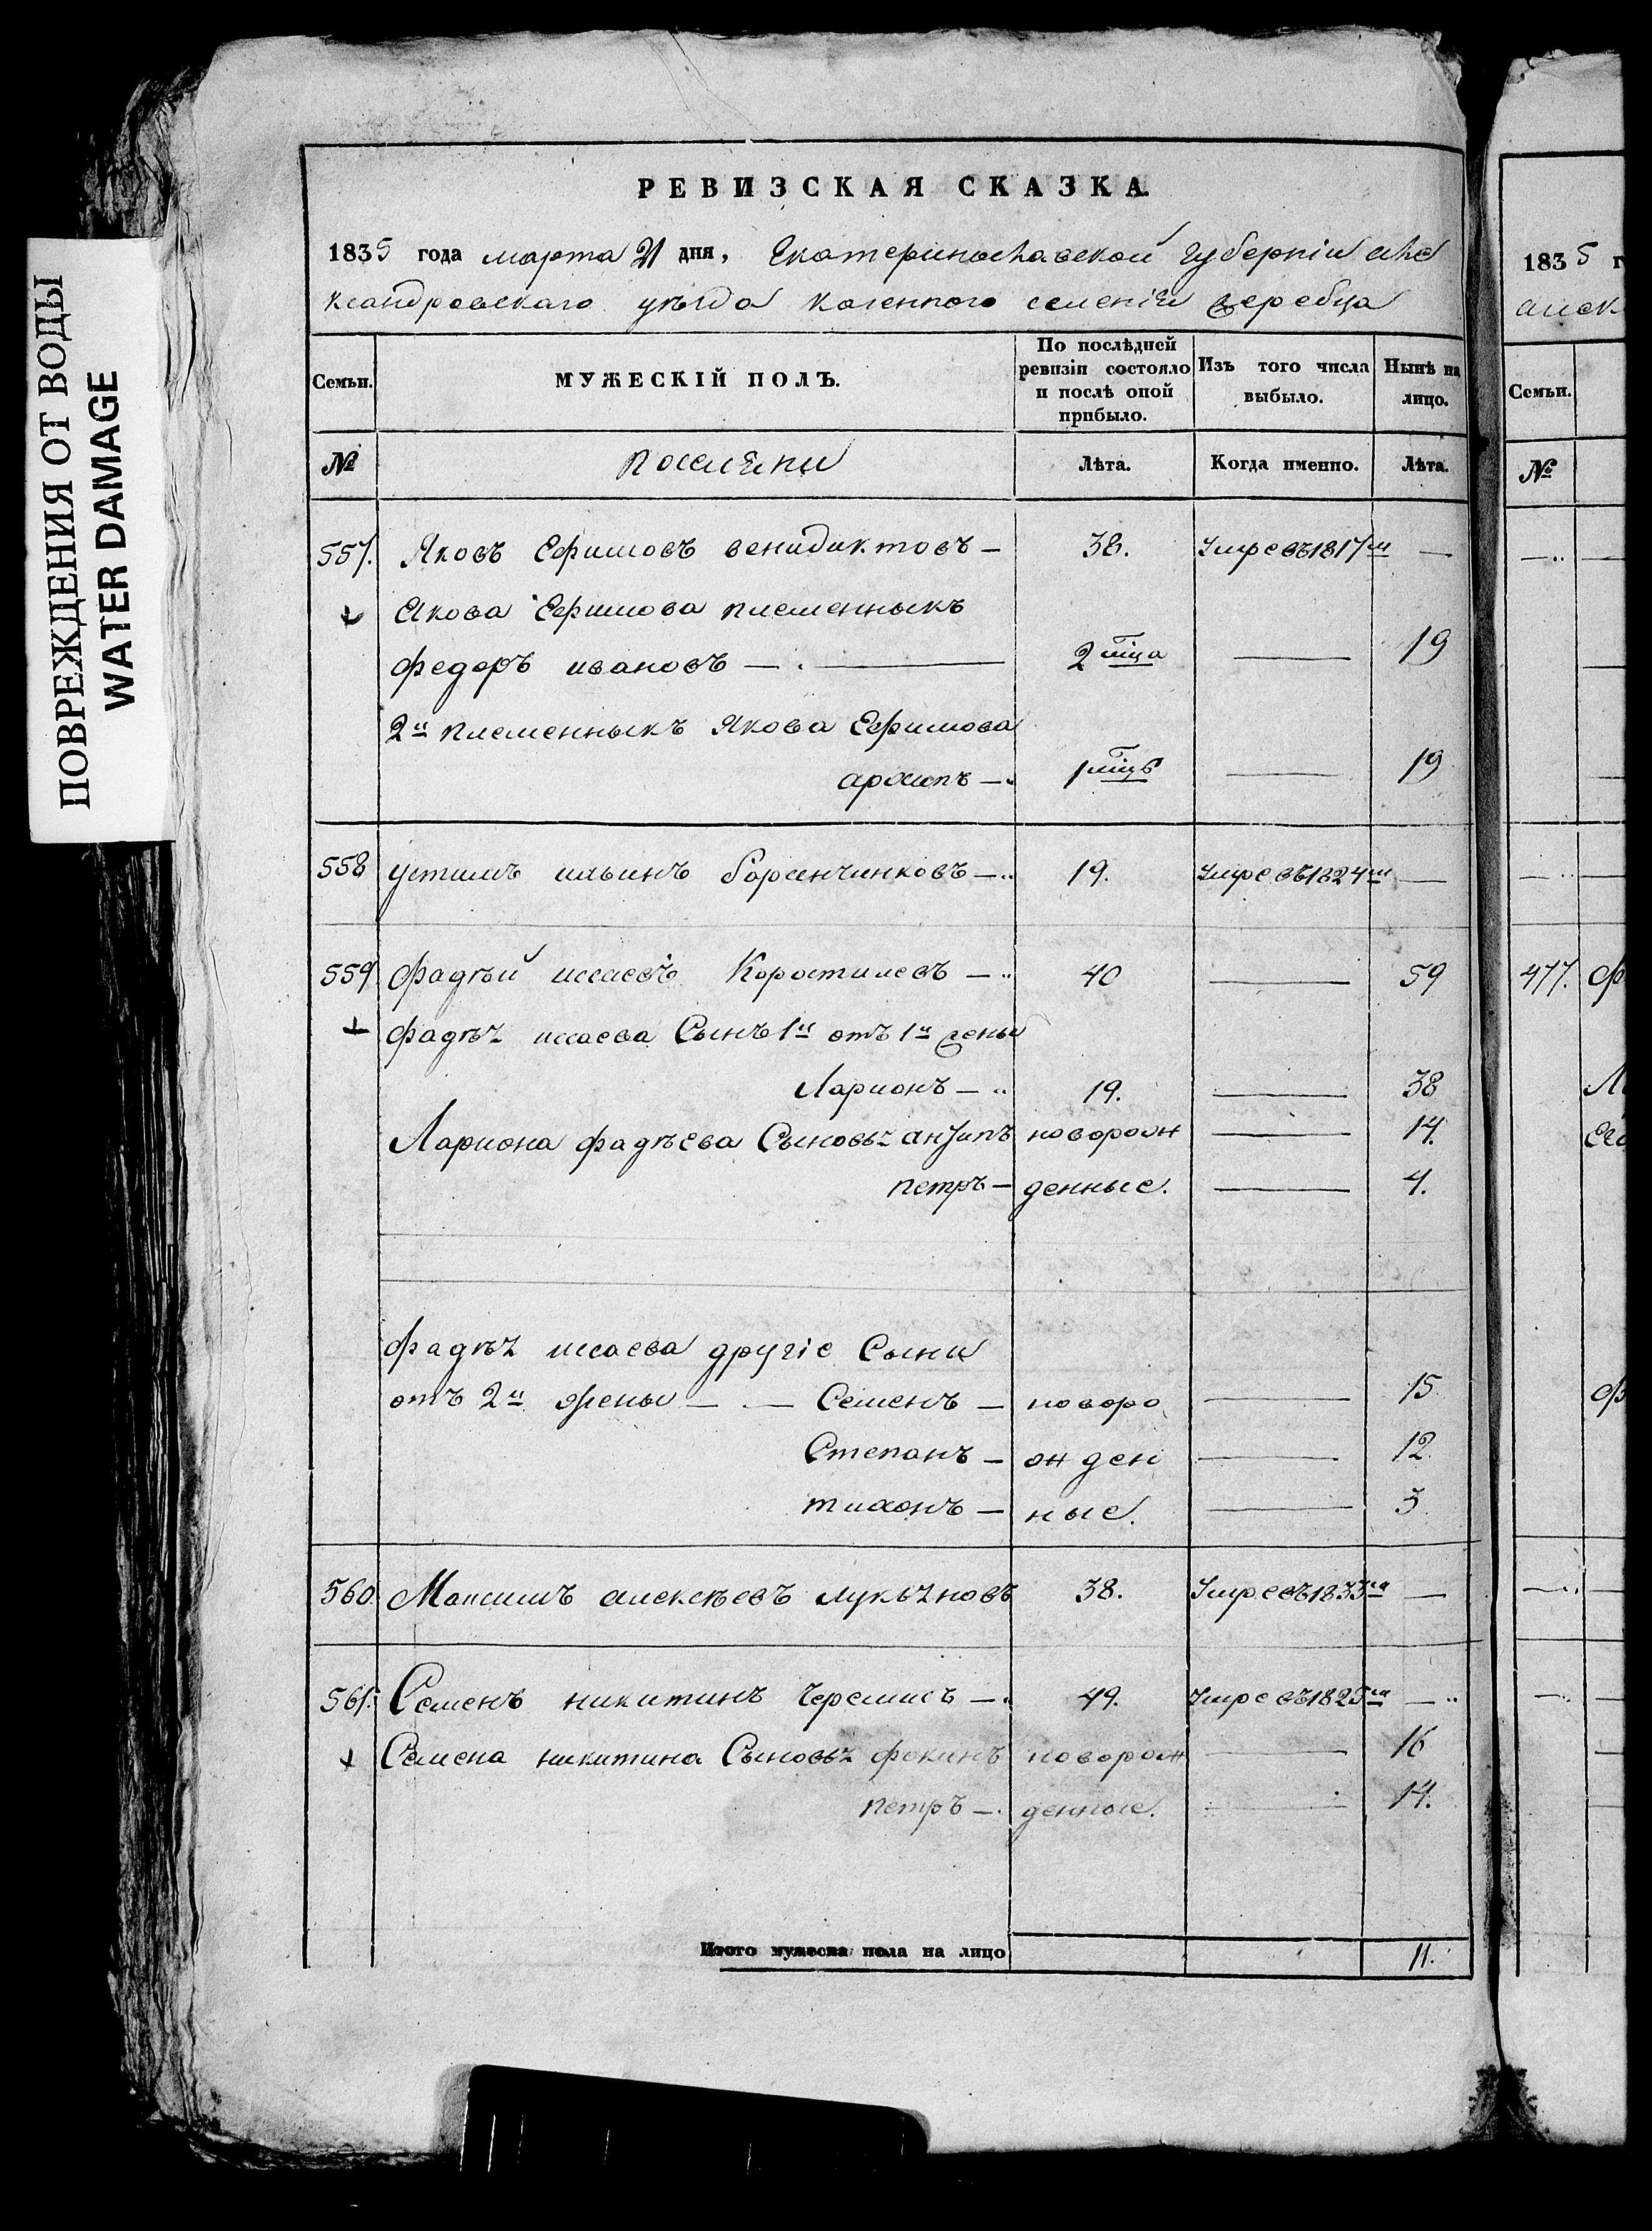 ПОВРЕЖДЕНИЯ ОТ ВОДЫ
WATER DAMAGE
РЕВИЗСКАЯ СКАЗКА.
1835 года марта 21 дня, Екатеринославской губерніи але
ксандровскаго уѣзда казенного селенія жеребца
Семьи. МУЖЕСКІЙ ПОЛЪ. По послѣдней ревизіи состояло и послѣ оной прибыло. Изъ того числа выбыло. Нынѣ на лицо.
№ поселяни Лѣта. Когда именно. Лѣта.
557. Яковъ Ефимовъ венидиктовъ — 38. Умре въ 1817м —
Якова Ефимова племенныкъ
федоръ ивановъ — 2 мца — 19
2й племенныкъ Якова Ефимова
архипъ — 1 мцъ — 19
558 устимъ ильинъ — 19. Умре въ 1824м —
559 Фадѣй исаевъ Коростилевъ — 40 — 59
фадѣя исаева Сынъ 1й отъ 1й жены
Ларионъ — 19. — 38
Лариона фадѣева Сыновья анзипъ поворож — 14.
петръ — денные. — 4.
фадѣя исаева другіе Сыни
отъ 2й жены — Семенъ — поворо — 15
Степанъ — ж ден — 12.
тихонъ — ные. — 3
560 Максимъ алексѣевъ лукьяновъ 38. Умре въ 1833м —
561. Семенъ никитинъ Черемисъ — 49. Умре въ 1825м —
Семена никитина Сыновья фокинъ поворож — 16
петръ — денные. — 14.
Итого мужеска пола на лицо 11.
1835 г
алек
Семьи.
№
477. Ф
Л
его
ф